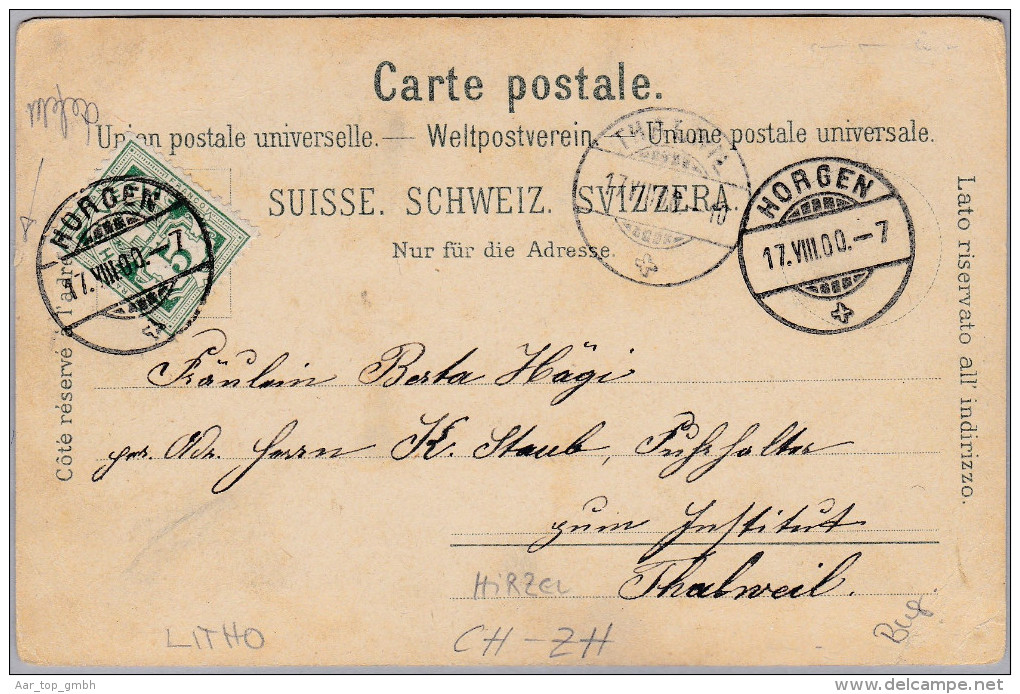 Carte postale.
Union postale universelle. — Weltpostverein. — Unione postale universale.
SUISSE. SCHWEIZ. SVIZZERA.
Nur für die Adresse.
Côté réservé à l'adre
Lato riservato all' indirizzo.
HORGEN
17.VIII.00.–7
5
HORGEN
17.VIII.00.–7
Fräulein Berta Hägi
per. Adr. Herrn K. Staub, Fuhrhalter
zum Institut
Thalweil.
HIRZEL
LITHO
CH – ZH
Aar_top_gmbh
delcampe.net